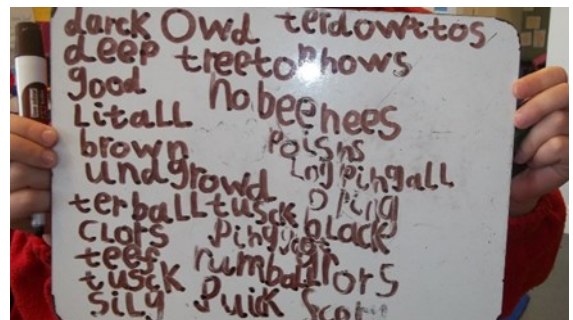 darck Owd terdowttos
deep treetop hows
good nobeenees
Litall
brown poisns
undgrowd Ingpingall
terball tusck pping
clors black
teef rumball
tusck
sily Puik Scary